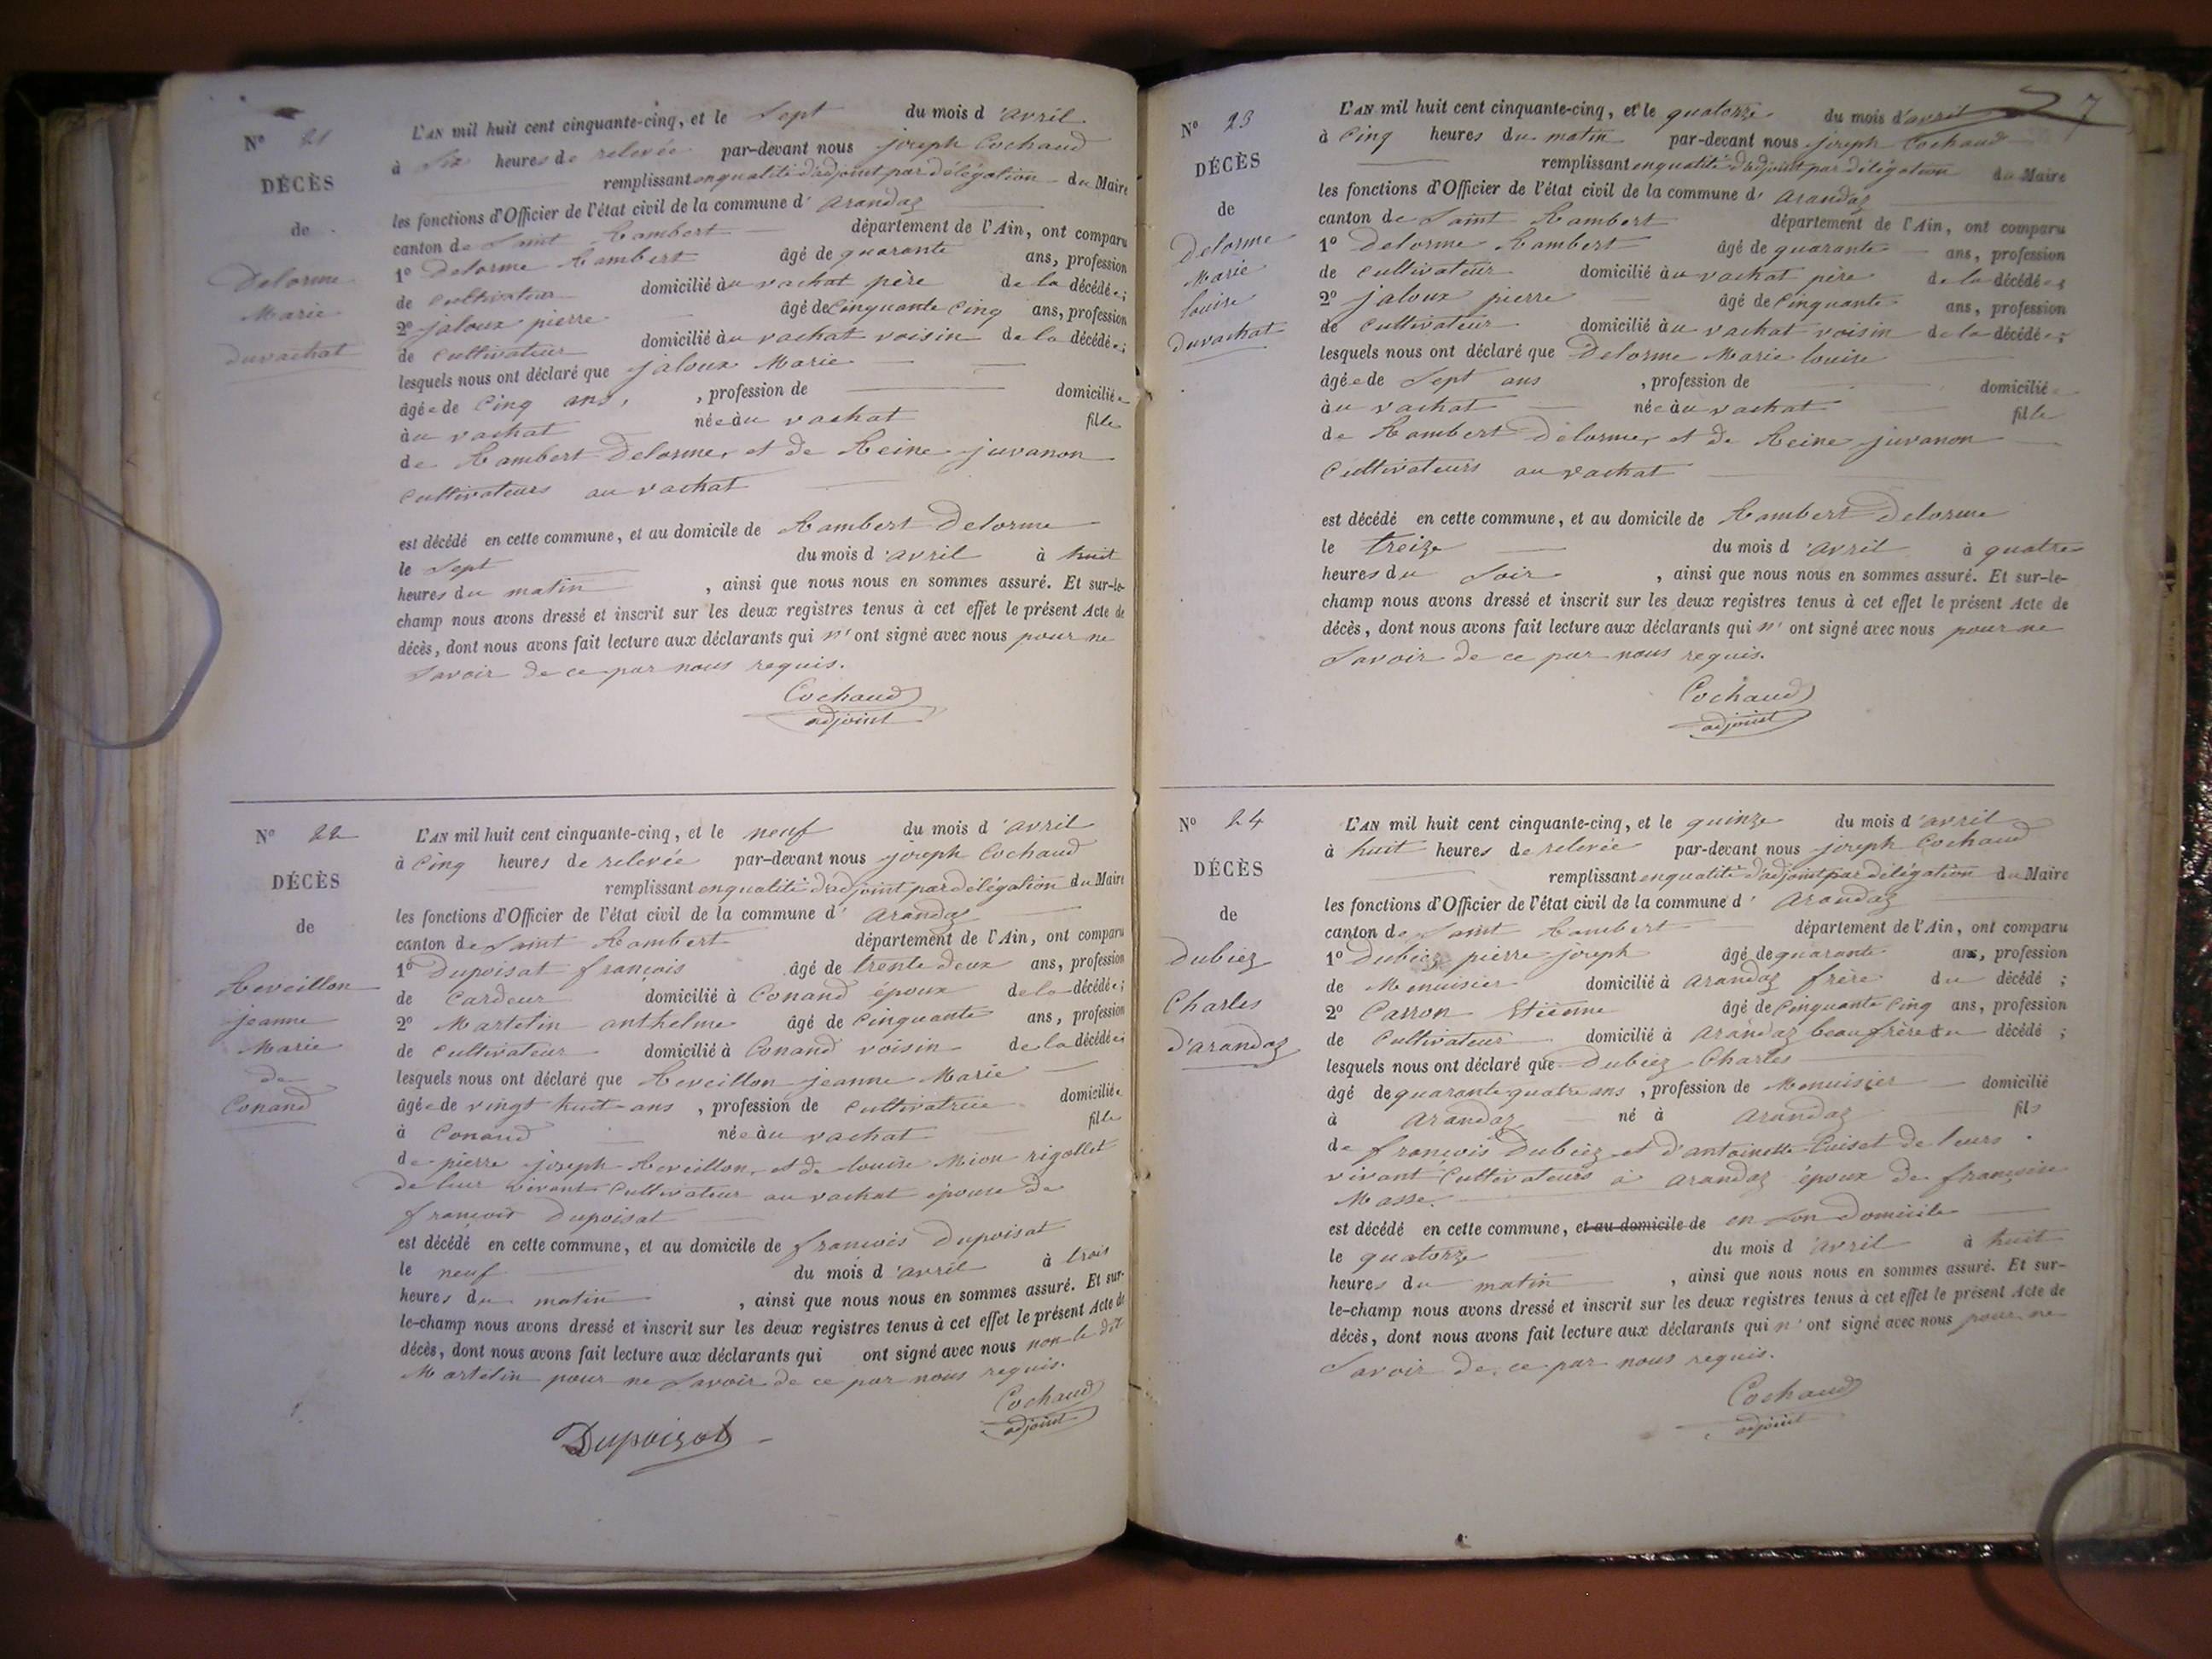 N° 21
DÉCÈS
de
Delorme
Marie
duvachat
L'AN mil huit cent cinquante-cinq, et le Sept du mois d'avril
à Six heures de relevée par-devant nous joseph Cochaud
remplissant enqualité d'adjoint par délégation du Maire
les fonctions d'Officier de l'état civil de la commune d'arandaz
canton de Saint Rambert département de l'Ain, ont comparu
1° Delorme Rambert âgé de quarante ans, profession
de cultivateur domicilié au vachat père de la décédée;
2° jaloux pierre âgé de Cinquante Cinq ans, profession
de cultivateur domicilié au vachat voisin de la décédée;
lesquels nous ont déclaré que jaloux Marie
âgée de Cinq ans, , profession de domiciliée
au vachat née au vachat fille
de Rambert Delorme, et de Reine juvanon
Cultivateurs au vachat
est décédé en cette commune, et au domicile de Rambert Delorme
le Sept du mois d'avril à huit
heures du matin , ainsi que nous nous en sommes assuré. Et sur-le-
champ nous avons dressé et inscrit sur les deux registres tenus à cet effet le présent Acte de
décès, dont nous avons fait lecture aux déclarants qui n'ont signé avec nous pour ne
Savoir de ce par nous requis.
Cochaud
adjoint
N° 22
DÉCÈS
de
Reveillon
jeanne
Marie
de
Conand
L'AN mil huit cent cinquante-cinq, et le neuf du mois d'avril
à Cinq heures de relevée par-devant nous joseph Cochaud
remplissant enqualité d'adjoint par délégation du Maire
les fonctions d'Officier de l'état civil de la commune d'arandaz
canton de Saint Rambert département de l'Ain, ont comparu
1° Dupoisat françois âgé de trente deux ans, profession
de Cardeur domicilié à Conand époux de la décédée;
2° Martelin anthelme âgé de Cinquante ans, profession
de Cultivateur domicilié à Conand voisin de la décédée;
lesquels nous ont déclaré que Reveillon jeanne Marie
âgée de vingt huit ans , profession de Cultivatrice domiciliée
à Conand née au vachat fille
de pierre joseph Reveillon, et de louise Mion rigollet
de leur vivant Cultivateur au vachat épouse de
françois Dupoisat
est décédé en cette commune, et au domicile de françois Dupoisat
le neuf du mois d'avril à trois
heures du matin , ainsi que nous nous en sommes assuré. Et sur-
le-champ nous avons dressé et inscrit sur les deux registres tenus à cet effet le présent Acte de
décès, dont nous avons fait lecture aux déclarants qui ont signé avec nous non le dit
Martelin pour ne Savoir de ce par nous requis.
Cochaud
adjoint
Dupoizat
7
N° 23
DÉCÈS
de
Delorme
Marie
louise
duvachat
L'AN mil huit cent cinquante-cinq, et le quatorze du mois d'avril
à Cinq heures du matin par-devant nous joseph Cochaud
remplissant enqualité d'adjoint par délégation du Maire
les fonctions d'Officier de l'état civil de la commune d'arandaz
canton de Saint Rambert département de l'Ain, ont comparu
1° Delorme Rambert âgé de quarante ans, profession
de Cultivateur domicilié au vachat père de la décédée;
2° jaloux pierre âgé de Cinquante ans, profession
de Cultivateur domicilié au vachat voisin de la décédée;
lesquels nous ont déclaré que Delorme Marie louise
âgée de Sept ans , profession de domiciliée
au vachat née au vachat fille
de Rambert Delorme, et de Reine juvanon
Cultivateurs au vachat
est décédé en cette commune, et au domicile de Rambert Delorme
le treize du mois d'avril à quatre
heures du Soir , ainsi que nous nous en sommes assuré. Et sur-le-
champ nous avons dressé et inscrit sur les deux registres tenus à cet effet le présent Acte de
décès, dont nous avons fait lecture aux déclarants qui n'ont signé avec nous pour ne
Savoir de ce par nous requis.
Cochaud
adjoint
N° 24
DÉCÈS
de
Dubiez
Charles
d'arandaz
L'AN mil huit cent cinquante-cinq, et le quinze du mois d'avril
à huit heures de relevée par-devant nous joseph Cochaud
remplissant enqualité d'adjoint par délégation du Maire
les fonctions d'Officier de l'état civil de la commune d'arandaz
canton de Saint Rambert département de l'Ain, ont comparu
1° Dubiez pierre joseph âgé de quarante ans, profession
de Menuisier domicilié à arandaz frère du décédé ;
2° Carron Etienne âgé de Cinquante Cinq ans, profession
de Cultivateur domicilié à arandaz beau frère du décédé ;
lesquels nous ont déclaré que Dubiez Charles
âgé de quarante quatre ans , profession de Menuisier domicilié
à arandaz né à arandaz fils
de françois Dubiez et d'antoinette Cuiset de leurs
vivant Cultivateurs à arandaz époux de françoise
Masse.
est décédé en cette commune, et au domicile de en Son Domicile
le quatorze du mois d'avril à huit
heures du matin , ainsi que nous nous en sommes assuré. Et sur-
le-champ nous avons dressé et inscrit sur les deux registres tenus à cet effet le présent Acte de
décès, dont nous avons fait lecture aux déclarants qui n'ont signé avec nous pour ne
Savoir de ce par nous requis.
Cochaud
adjoint